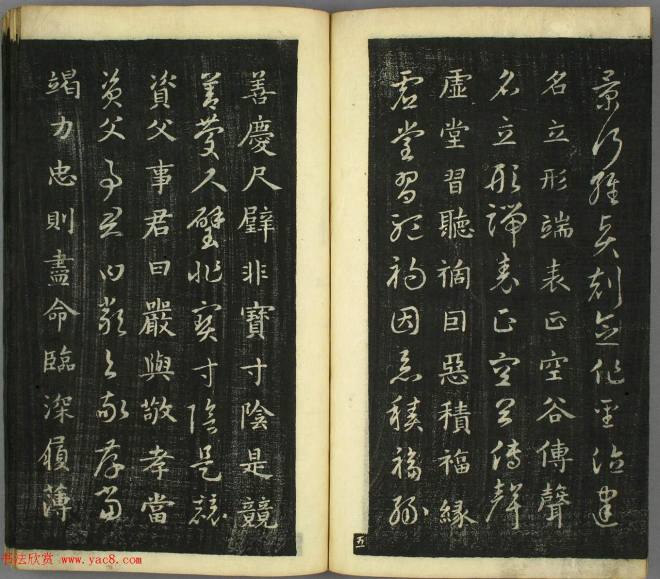 景行維賢剋念作聖德建
名立形端表正空谷傳聲
名立形端表正空谷傳聲
虛堂習聽禍因惡積福緣
虛堂習聽禍因惡積福緣
五
善慶尺璧非寶寸陰是競
善慶尺璧非寶寸陰是競
資父事君曰嚴與敬孝當
資父事君曰嚴與敬孝當
竭力忠則盡命臨深履薄
书法欣赏 www.yac8.com